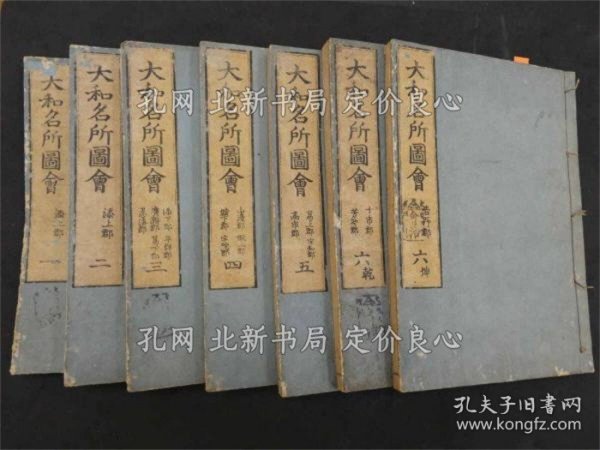 大和名所圖會
添上郡
一
大和名所圖會
添上郡
二
大和名所圖會
添下郡 平群郡
廣瀬郡 葛下郡
三
大和名所圖會
四
大和名所圖會
高市郡
五
大和名所圖會
十市郡
六乾
大和名所圖會
吉野郡
六坤
孔网 北新书局 定价良心
孔网 北新书局 定价良心
孔夫子旧书网
www.kongfz.com